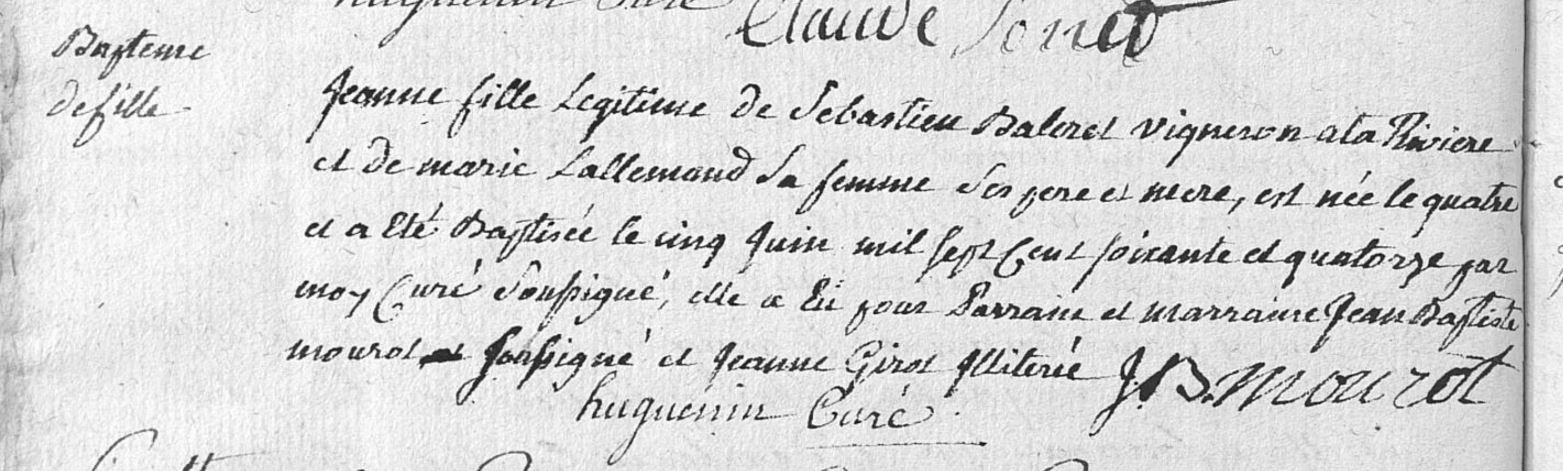 huguenin Curé
Claude Sonet
Bapteme
de fille
Jeanne fille Legitime de Sebastien Baleret vigneron a la Riviere
et de marie Lallemand Sa femme Ses pere et mere, est née le quatre
et a Eté Baptisée le cinq Juin mil sept Cent soixante et quatorze par
moy Curé Soussigné, elle a Eü pour Parrain et marraine Jean Baptiste
mourot soussigné et Jeanne Girot Illiterée J B. mourot
huguenin Curé